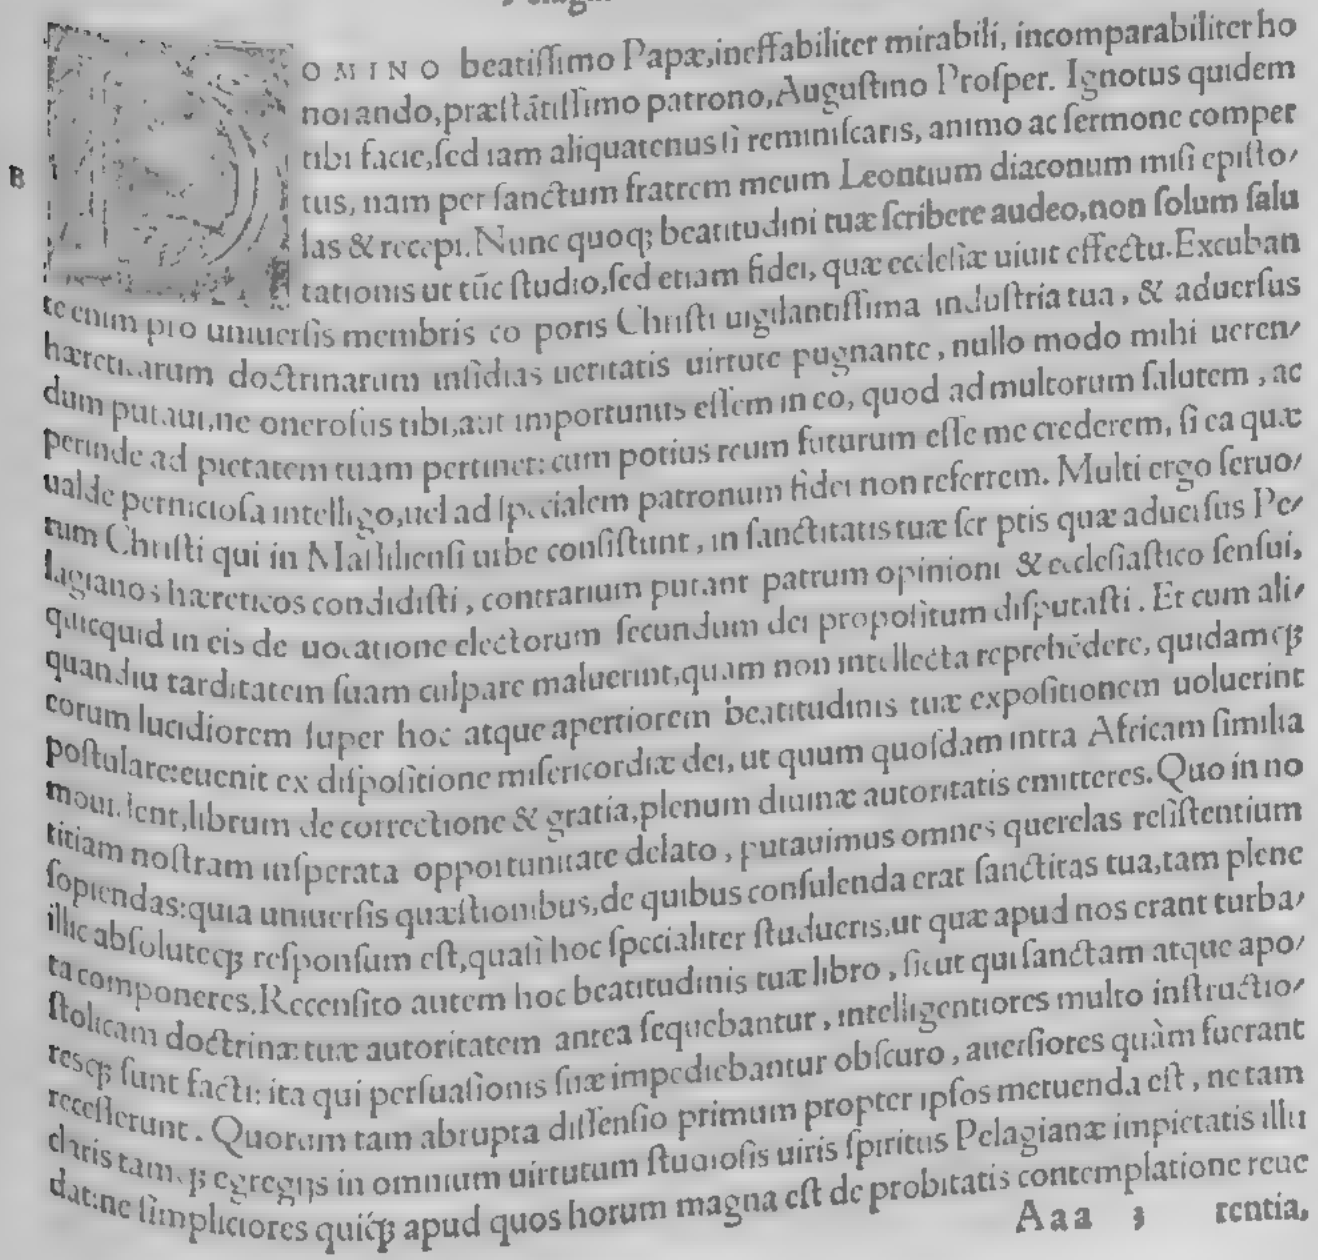 DOMINO beatiſſimo Papæ,ineffabiliter mirabili, incomparabiliter ho
norando,præſtãtiſſimo patrono,Auguſtino Proſper. Ignotus quidem
tibi facie,ſed iam aliquatenus ſi reminiſcaris, animo ac ſermone comper
B
tus, nam per ſanctum fratrem meum Leontium diaconum miſi epiſto/
las & recepi.Nunc quoq; beatitudini tuæ ſcribere audeo,non ſolum ſalu
tationis ut tũc ſtudio,ſed etiam fidei, quæ eccleſiæ uiuit effectu.Excuban
te enim pro uniuerſis membris co poris Chriſti uigilantiſſima induſtria tua, & aduerſus
hæreticarum doctrinarum inſidias ueritatis uirtute pugnante, nullo modo mihi ueren/
dum putaui,ne oneroſus tibi,aut importunus eſſem in eo, quod ad multorum ſalutem, ac
perinde ad pietatem tuam pertinet: cum potius reum futurum eſſe me crederem, ſi ea quæ
ualde pernicioſa intelligo,uel ad ſpecialem patronum fidei non referrem. Multi ergo ſeruo/
rum Chriſti qui in Maſſilienſi urbe conſiſtunt, in ſanctitatis tuæ ſcr ptis quæ aduerſus Pe/
lagianos hæreticos condidiſti, contrarium putant patrum opinioni & eccleſiaſtico ſenſui,
quicquid in eis de uocatione electorum ſecundum dei propoſitum diſputaſti. Et cum ali/
quandiu tarditatem ſuam culpare maluerint,quam non intellecta reprehẽdere, quidamq;
eorum lucidiorem ſuper hoc atque apertiorem beatitudinis tuæ expoſitionem uoluerint
poſtulare:euenit ex diſpoſitione miſericordiæ dei, ut quum quoſdam intra Africam ſimilia
mouiſſent,librum de correctione & gratia,plenum diuinæ autoritatis emitteres.Quo in no
titiam noſtram inſperata opportunitate delato, putauimus omnes querelas reſiſtentium
ſopiendas:quia uniuerſis quæſtionibus,de quibus conſulenda erat ſanctitas tua,tam plene
illic abſoluteq; reſponſum eſt,quaſi hoc ſpecialiter ſtudueris,ut quæ apud nos erant turba/
ta componeres.Recenſito autem hoc beatitudinis tuæ libro, ſicut qui ſanctam atque apo/
ſtolicam doctrinæ tuæ autoritatem antea ſequebantur, intelligentiores multo inſtructio/
resq; ſunt facti: ita qui perſuaſionis ſuæ impediebantur obſcuro, auerſiores quàm fuerant
receſſerunt. Quorum tam abrupta diſſenſio primum propter ipſos metuenda eſt, ne tam
claris tamq; egregijs in omnium uirtutum ſtudioſis uiris ſpiritus Pelagianæ impietatis illu
dat:ne ſimpliciores quiq́; apud quos horum magna eſt de probitatis contemplatione reue
Aaa 3 rentia,